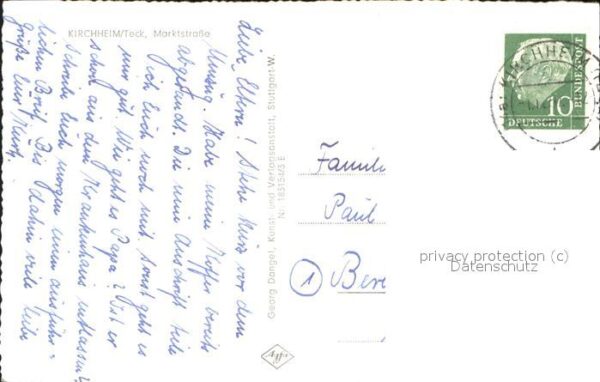 KIRCHHEIM/Teck, Marktstraße
Liebe Eltern! Stehe kurz vor dem
Umzug. Habe meine Koffer bereits
abgesandt. Die neue Anschrift teile
ich Euch noch mit. Sonst geht es
mir gut. Wie geht es Papa? Ist er
schon aus dem Krankenhaus entlassen?
Schreibe Euch morgen einen ausführ=
lichen Brief. Bis dahin viele liebe
Grüße Euer
Georg Dangel, Kunst- und Verlagsanstalt, Stuttgart-W.
Nr. 18515/45 E
Famili
Paul
1 Ber
KIRCHHEIM (TECK
10
DEUTSCHE
BUNDESPOST
privacy protection (c)
Datenschutz